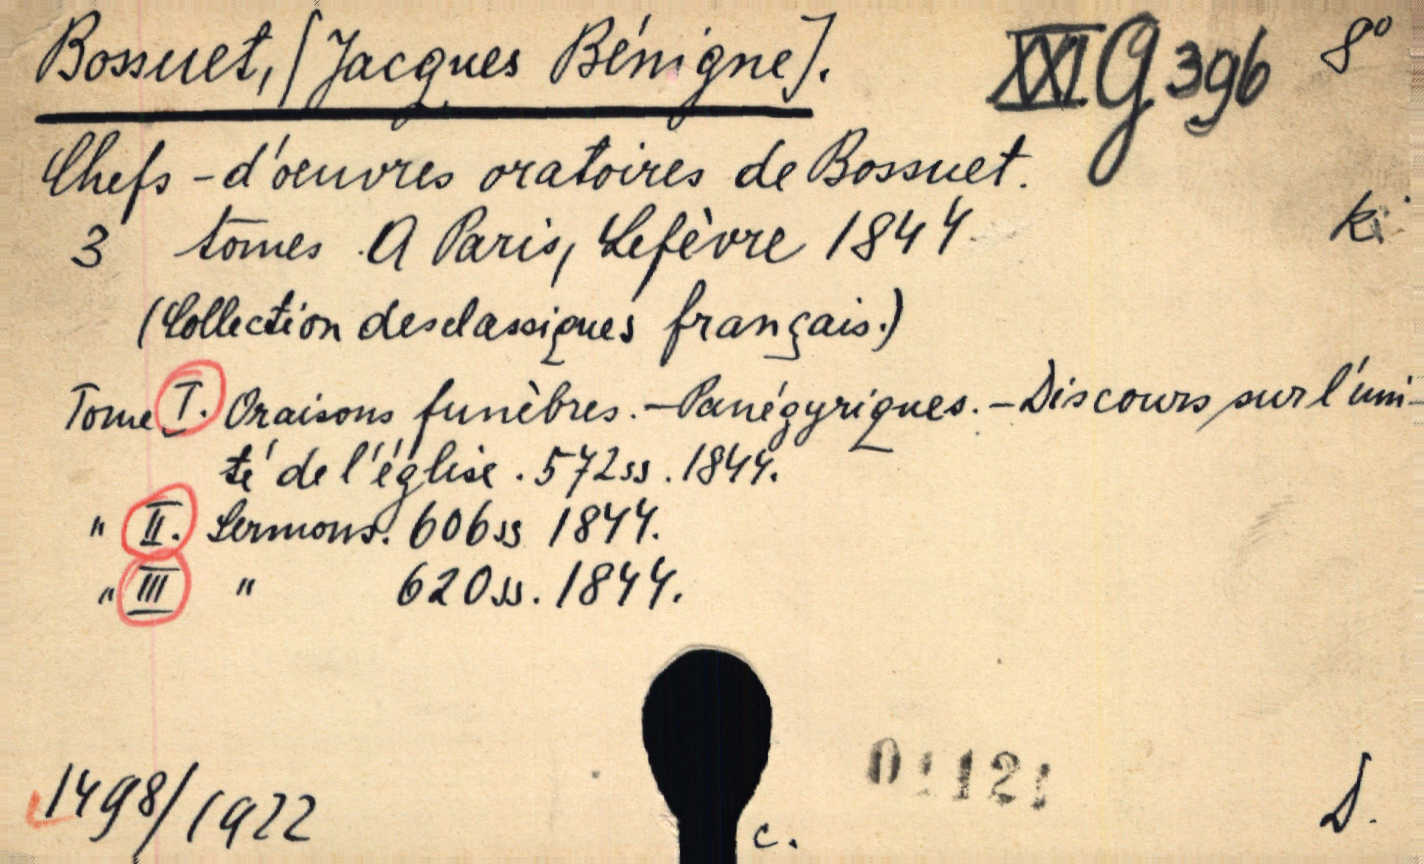 Bossuet, [Jacques Bénigne]. XXI G 396 8°
Chefs-d'oeuvres oratoires de Bossuet.
3 tomes. A Paris, Lefèvre 1844 k
(Collection des classiques français.)
Tome I. Oraisons funèbres. - Panégyriques. - Discours sur l'uni-
té de l'église. 572 ss. 1844.
" II. Sermons. 606 ss 1844.
" III " 620 ss. 1844.
1498/1922
c.
D.